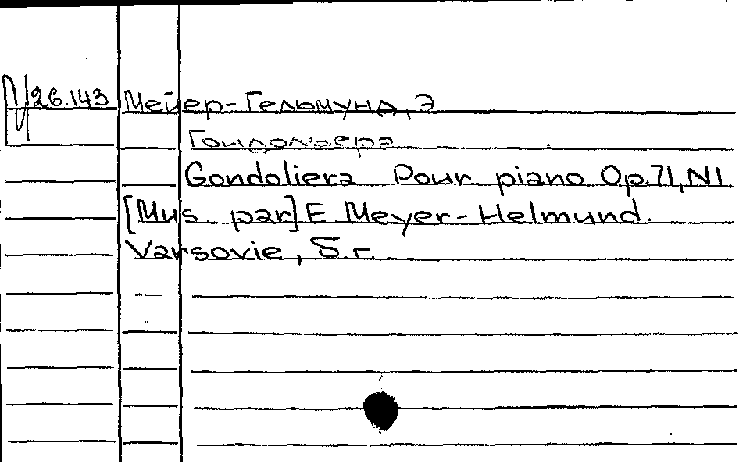 У26.143 Мейер-Гельмунд, Э
Гондольера
Gondoliera Pour piano Op.71, N1
[Mus. par] E. Meyer-Helmund.
Varsovie, S.r.